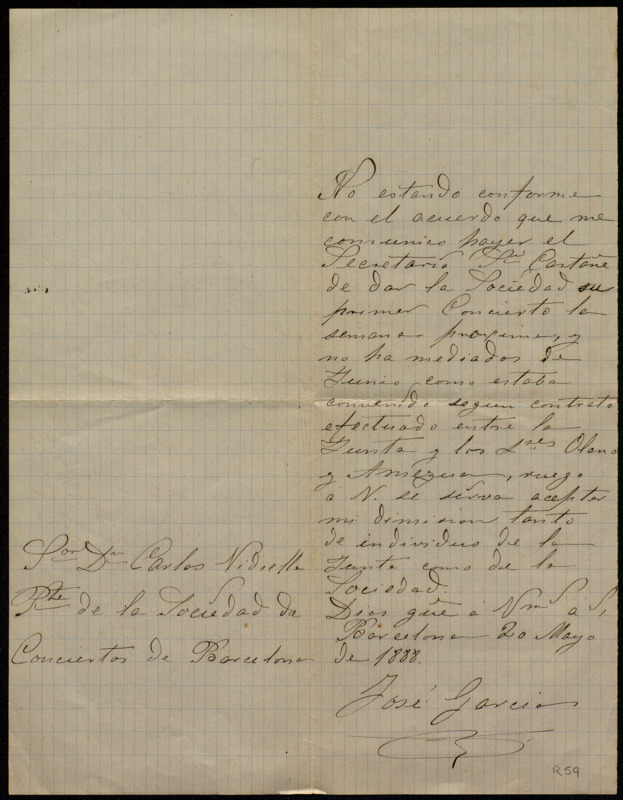 No estando conforme
con el acuerdo que me
comunico hayer el
Secretario Sr. Castañe
de dar la Sociedad su
primer Concierto la
semana proxima, y
no ha mediados de
Junio como estaba
convenido segun contrato
efectuado entre la
Junta y los Sres Olano
y Amezua, ruego
a V. se sirva aceptar
mi dimision tanto
de individuo de la
Junta como de la
Sociedad.
Dios gue a V ms as.
Barcelona 20 Mayo
de 1888.
José Garcia
Sor Dn Carlos Vidiella
Pte de la Sociedad de
Conciertos de Barcelona
R59